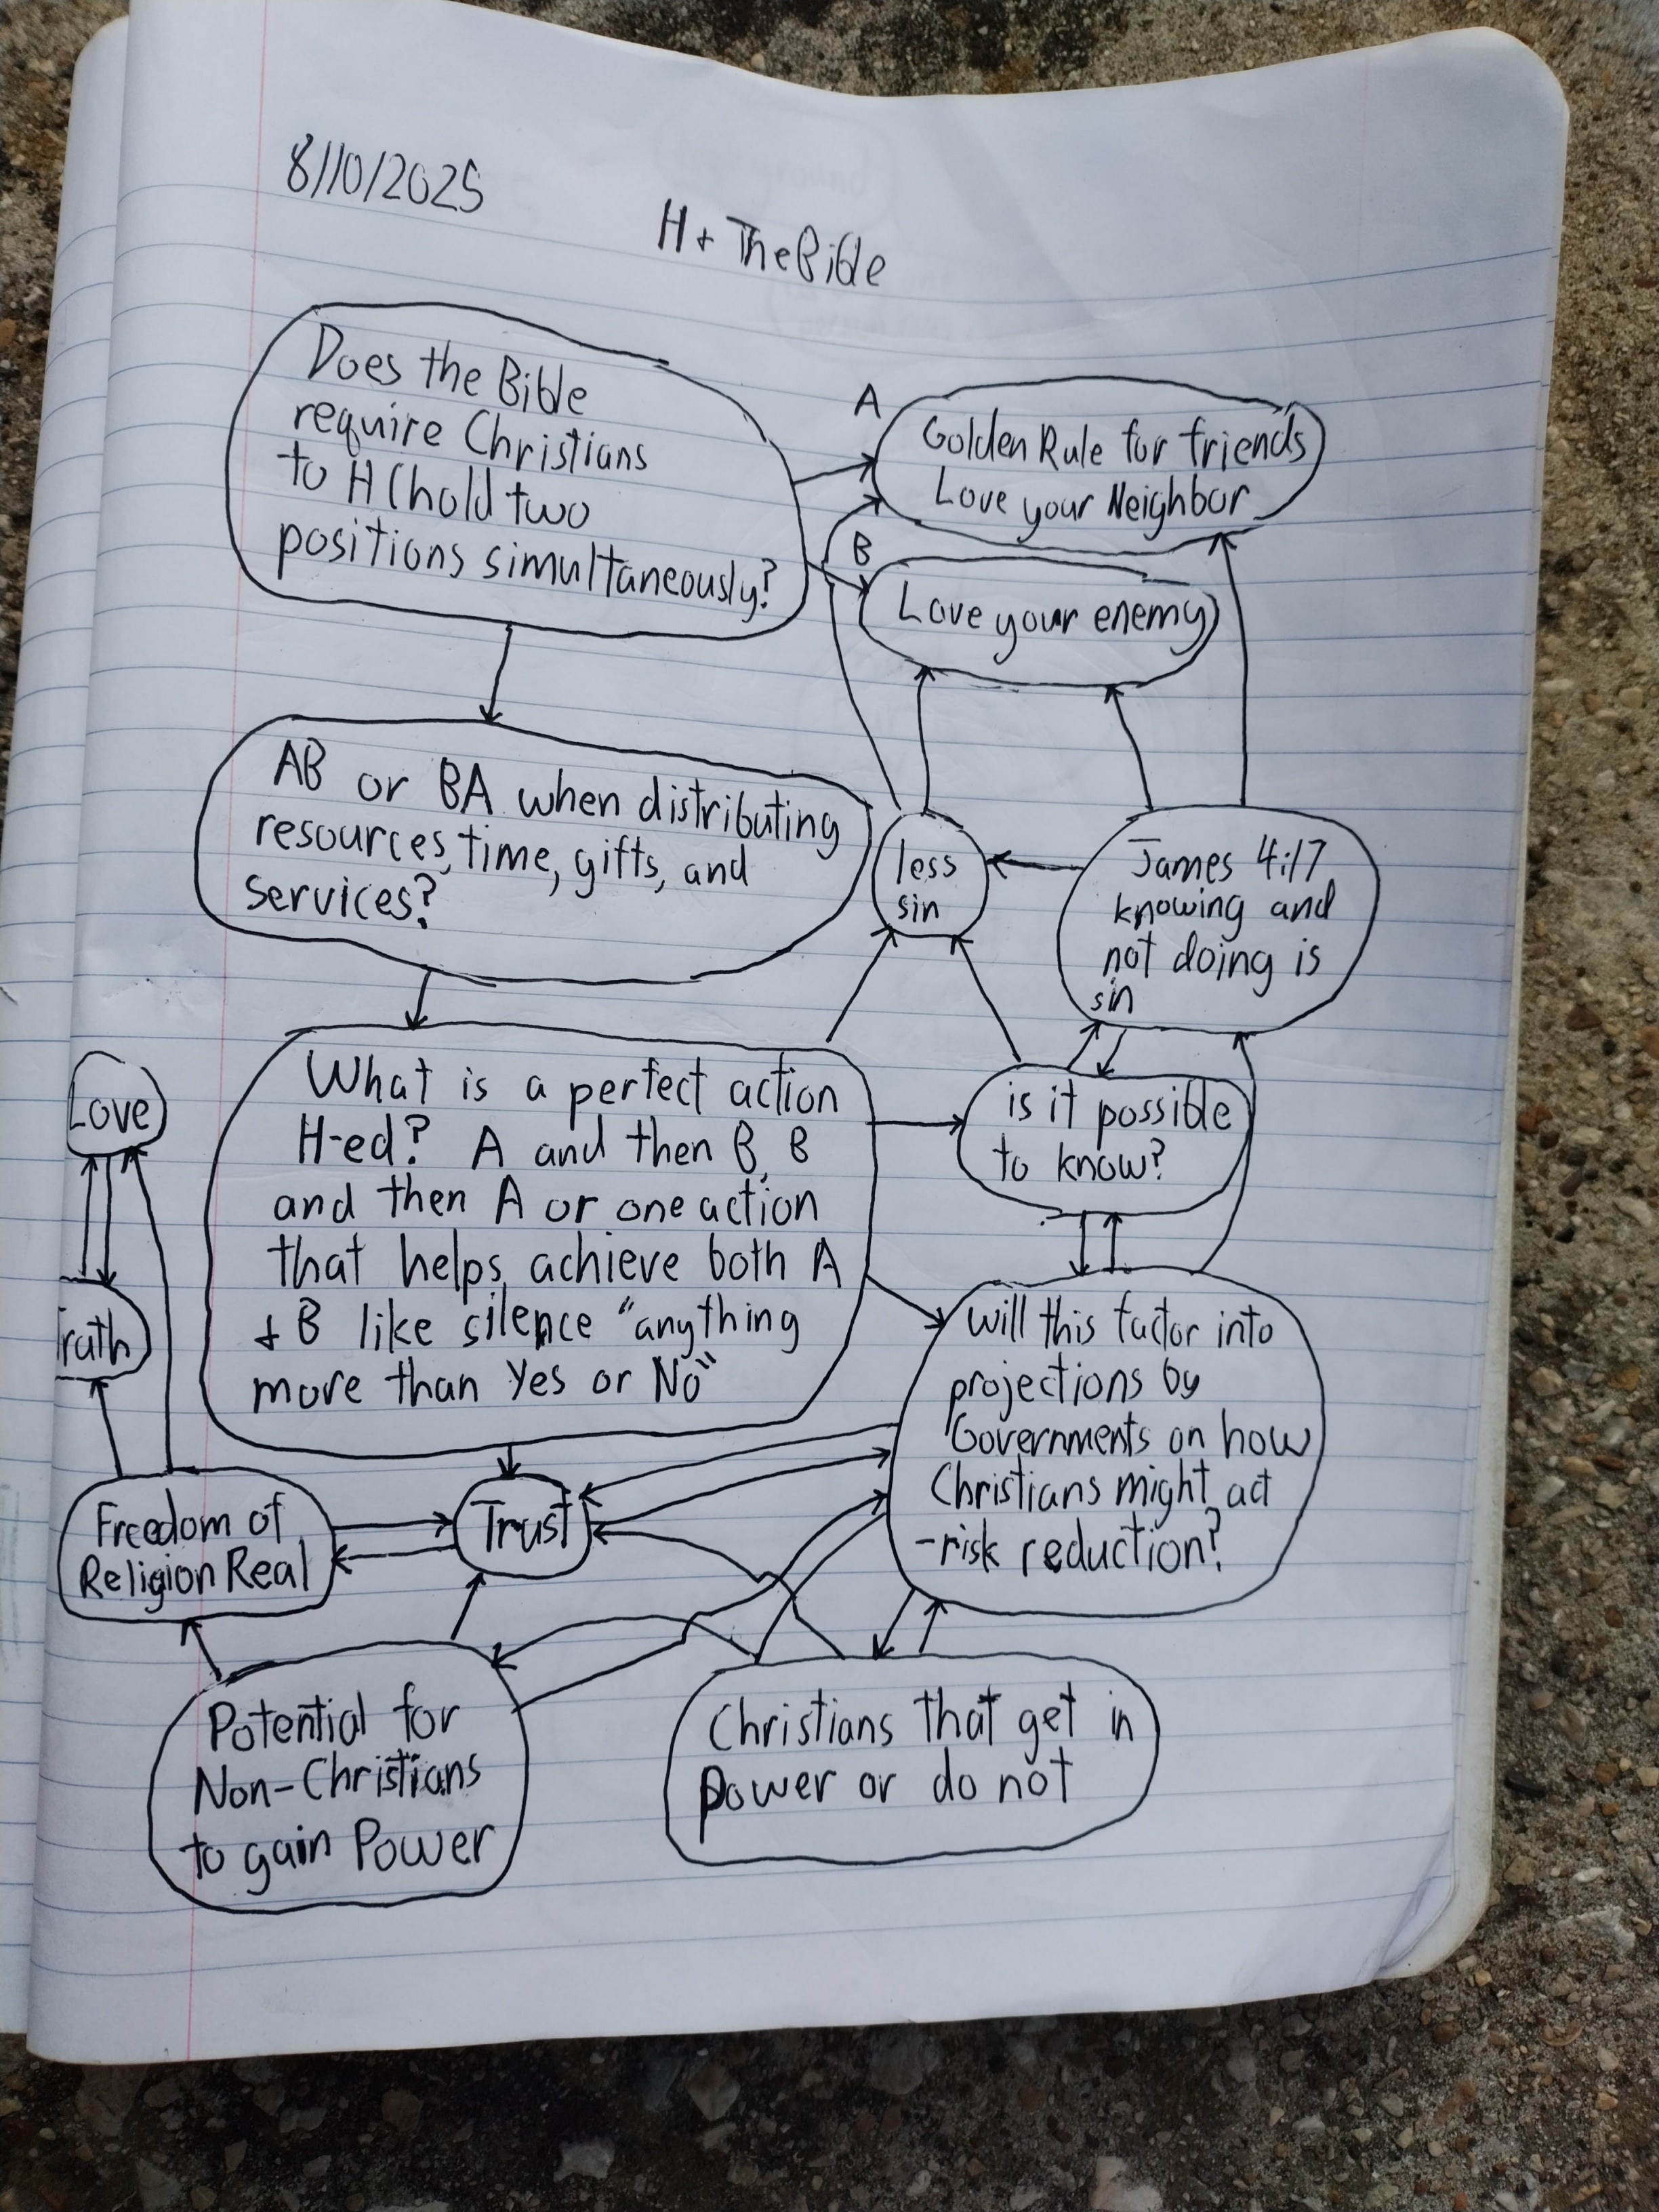 8/10/2025
H + The Bible
Does the Bible
require Christians
to H (hold two
positions simultaneously?
A
Golden Rule for friends
Love your Neighbor
B
Love your enemy
AB or BA when distributing
resources, time, gifts, and
services?
less
sin
James 4:17
knowing and
not doing is
sin
What is a perfect action
H-ed? A and then B, B
and then A or one action
that helps achieve both A
+ B like silence "anything
more than Yes or No"
is it possible
to know?
Love
Truth
Will this factor into
projections by
Governments on how
Christians might act
-risk reduction?
Freedom of
Religion Real
Trust
Potential for
Non-Christians
to gain Power
Christians that get in
power or do not